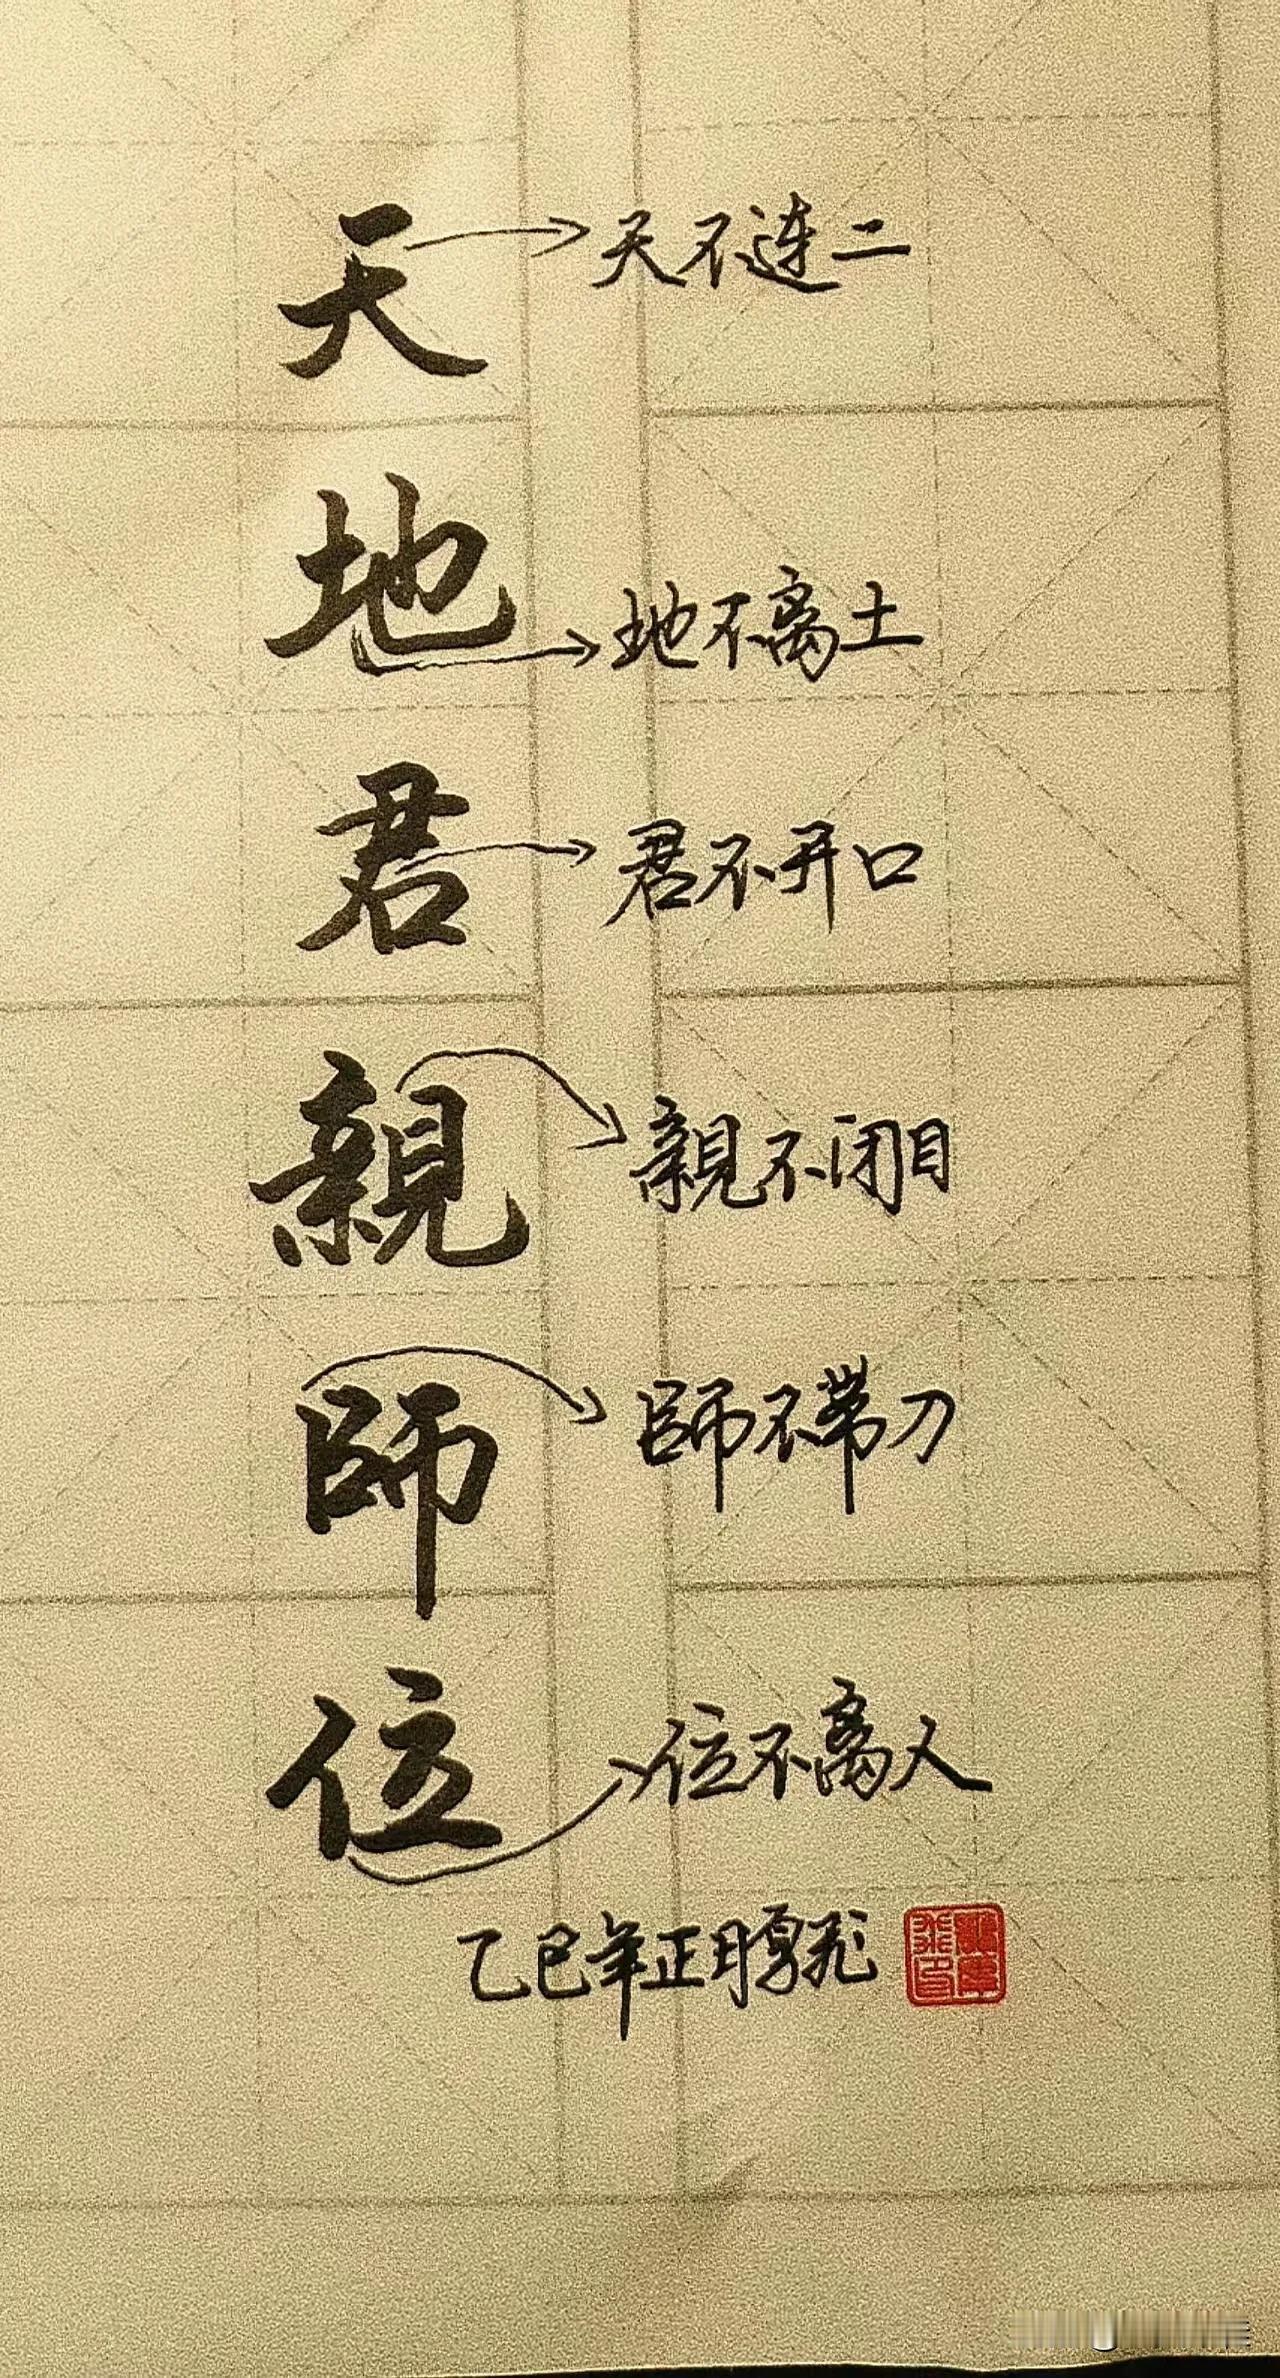 天
天不连二
地
地不离土
君
君不开口
親
親不闭目
師
師不带刀
位
位不离人
乙巳年正月